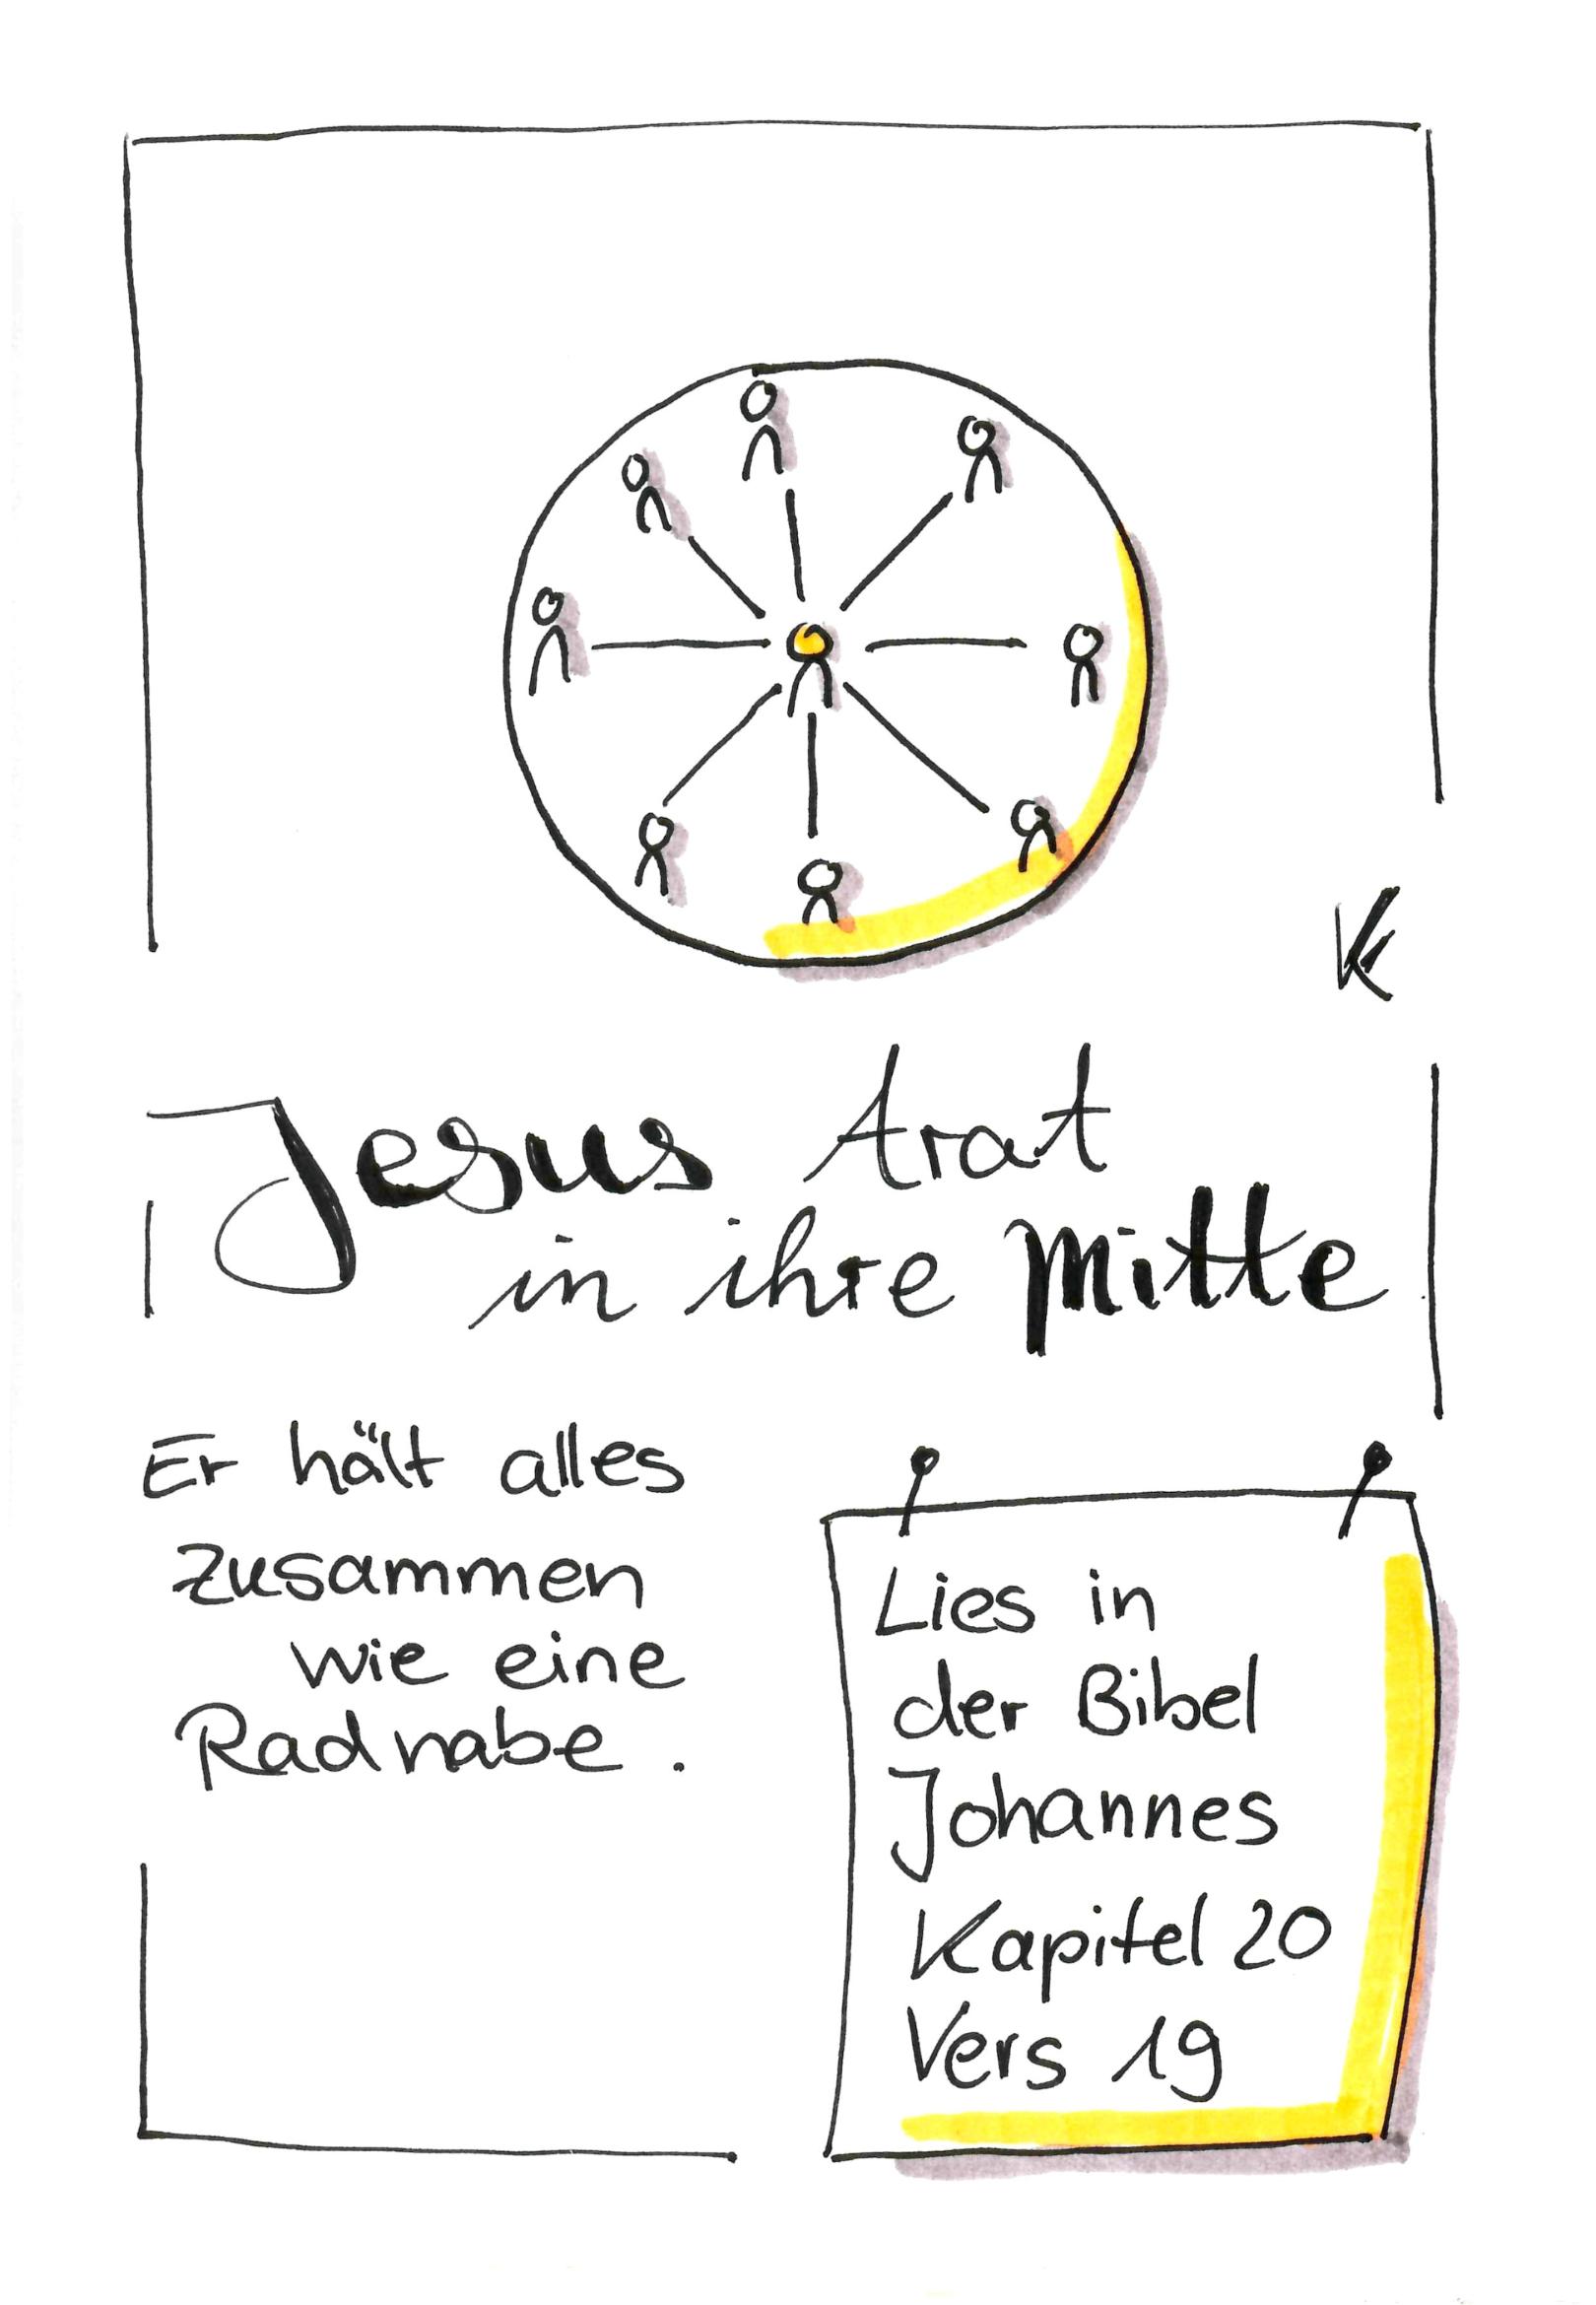 K
Jesus trat
in ihre Mitte
Er hält alles
zusammen
wie eine
Radnabe.
Lies in
der Bibel
Johannes
Kapitel 20
Vers 19